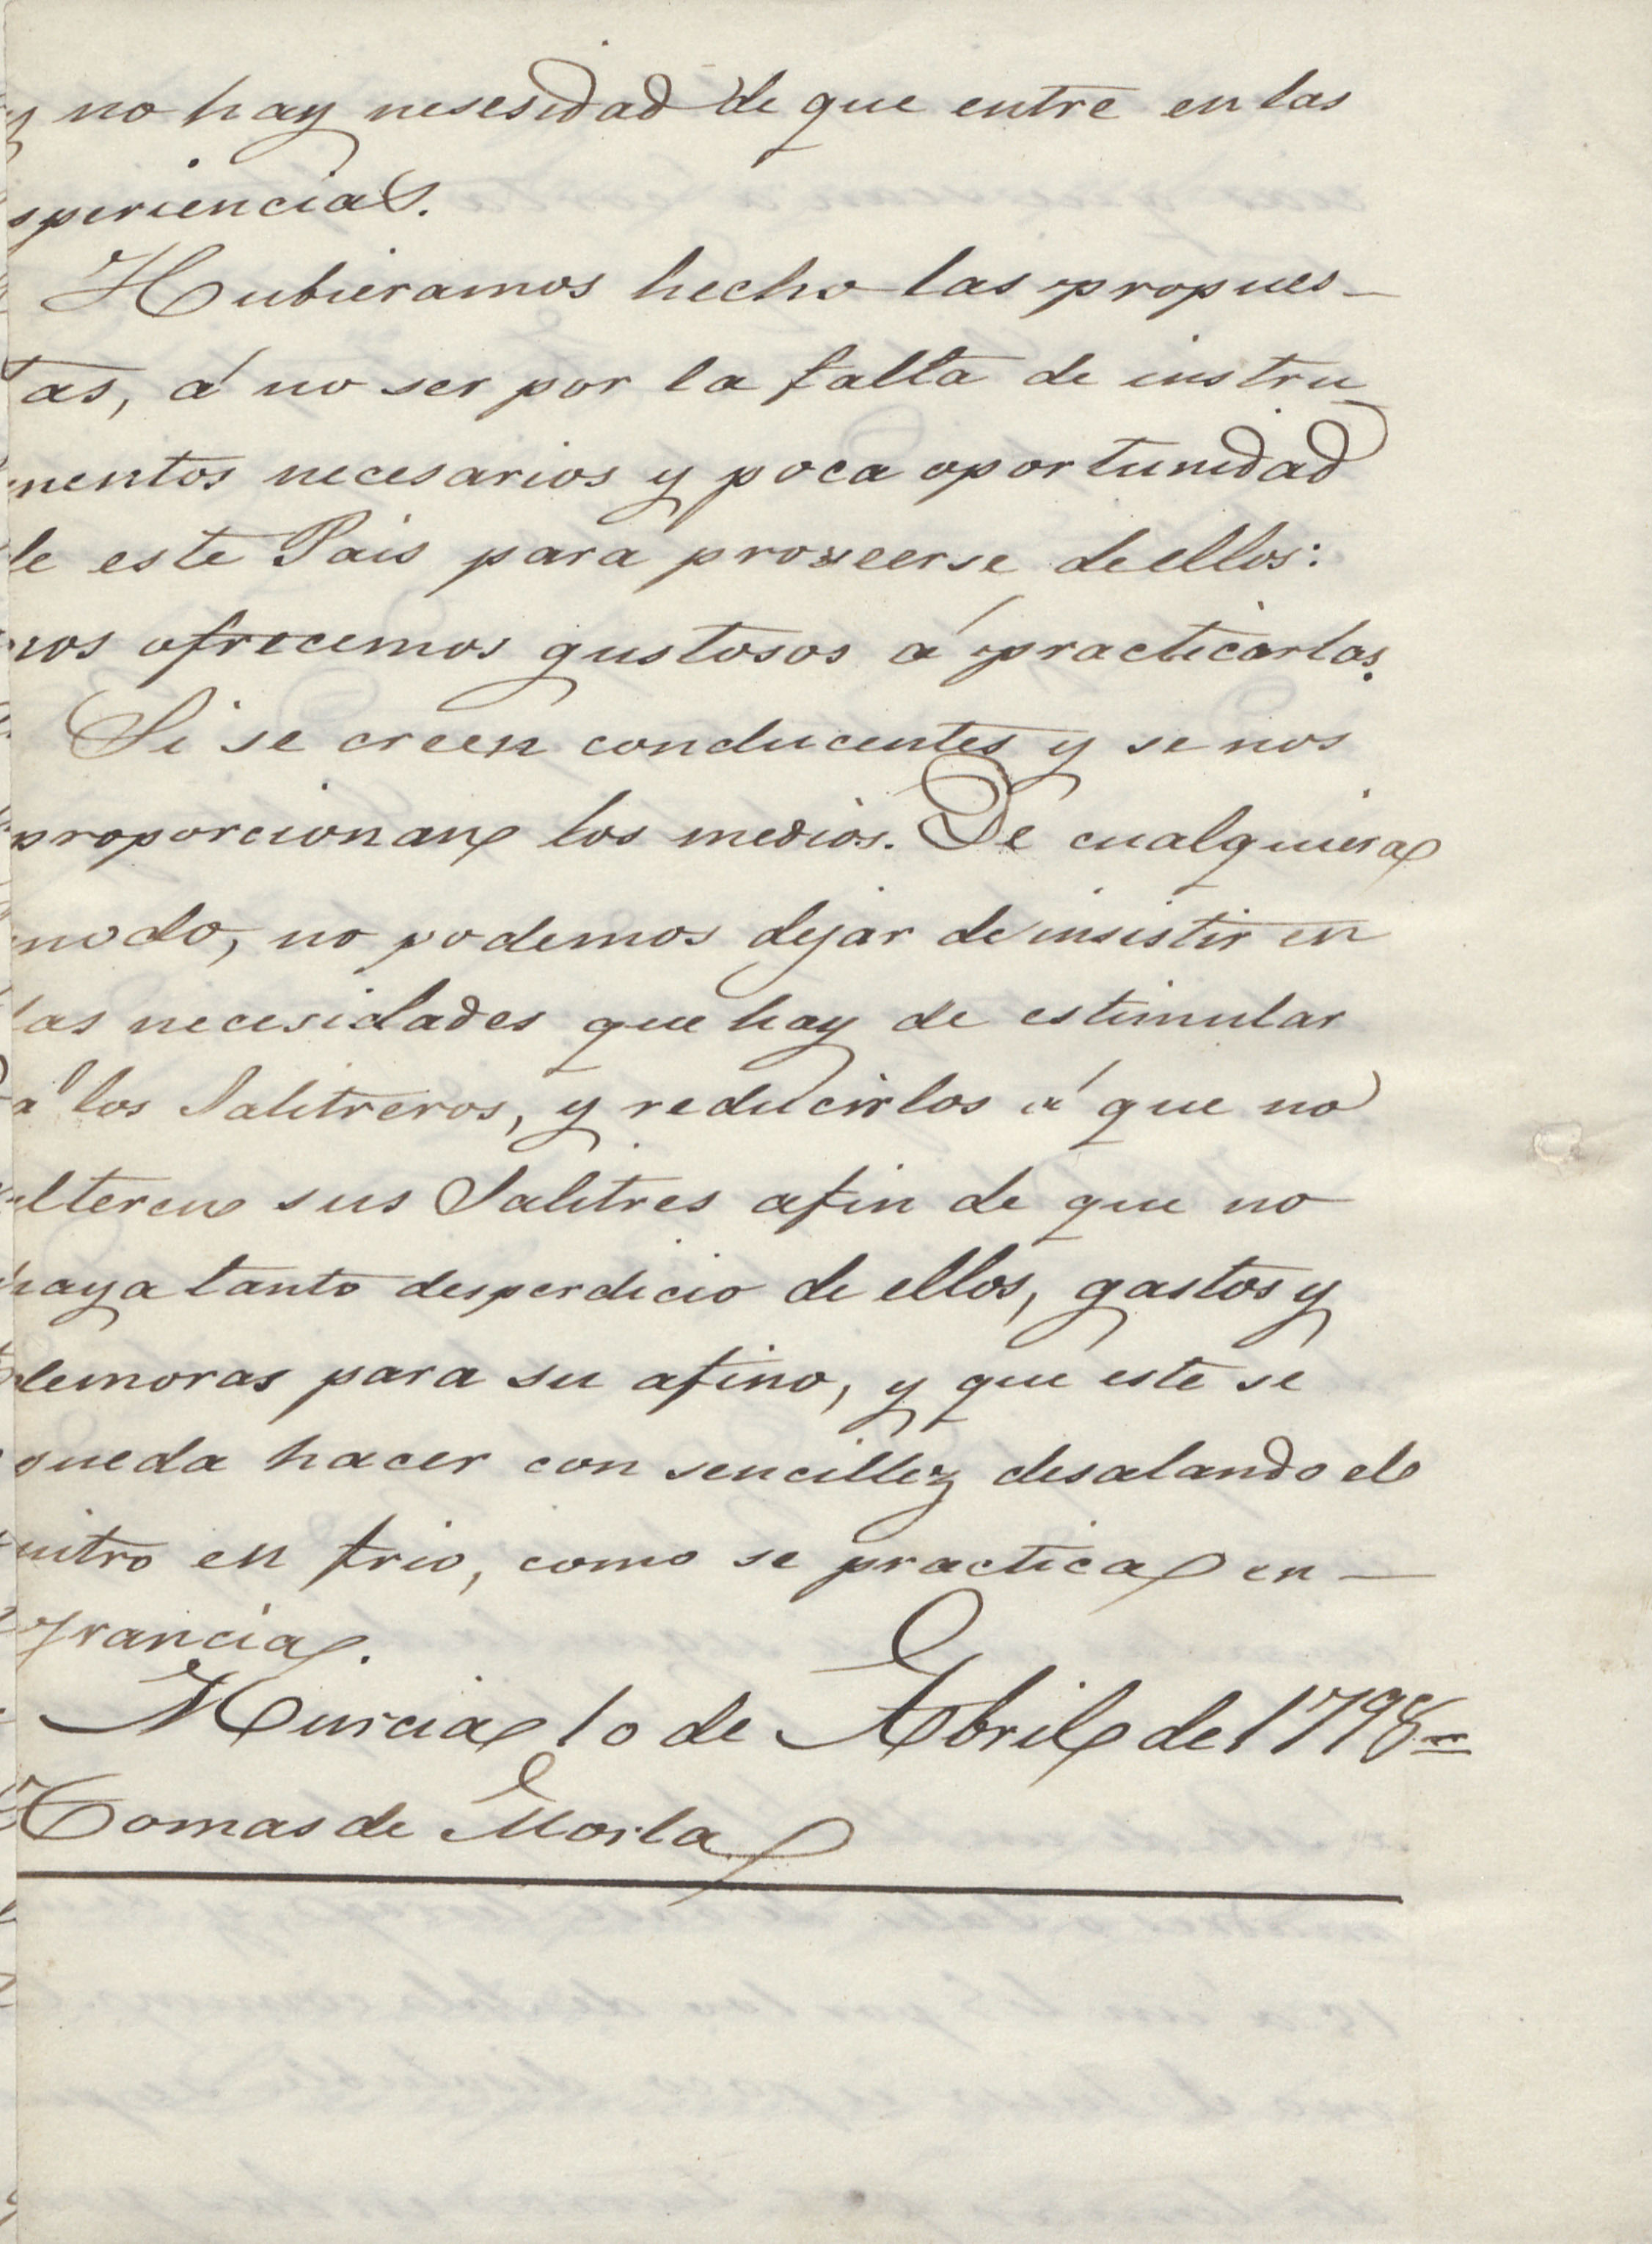 y no hay nesesidad de que entre en las
speriencias.
Hubieramos hecho las propues-
tas, á no ser por la falta de instru-
mentos necesarios y poca oportunidad
de este Pais para proveerse de ellos:
nos ofrecemos gustosos á practicarlas.
Si se creen conducentes y se nos
proporcionan los medios. De cualquiera
modo, no podemos dejar de insistir en
las necesidades que hay de estimular
á los Salitreros, y reducirlos á que no
alteren sus Salitres afin de que no
haya tanto desperdicio de ellos, gastos y
demoras para su afino, y que este se
pueda hacer con sencillez desalando el
nitro en frio, como se practica en —
Francia.
Murcia 10 de Abril de 1798=
Tomas de Morla